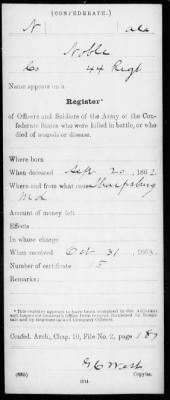 (CONFEDERATE.)
N Ala
Noble
Co 44 Regt
Name appears on a
Register*
of Officers and Soldiers of the Army of the Con-
federate States who were killed in battle, or who
died of wounds or disease.
Where born
When deceased Sept 20, 1862.
Where and from what cause Sharpsburg
Md
Amount of money left
Effects
In whose charge
When received Oct 31, 1863.
Number of certificate 15
Remarks:
*This register appears to have been compiled in the Adjutant
and Inspector General's Office from reports furnished by Hospi-
tals and by Regimental and Company Officers.
Confed. Arch., Chap. 10, File No. 2, page 187
G C West
Copyist.